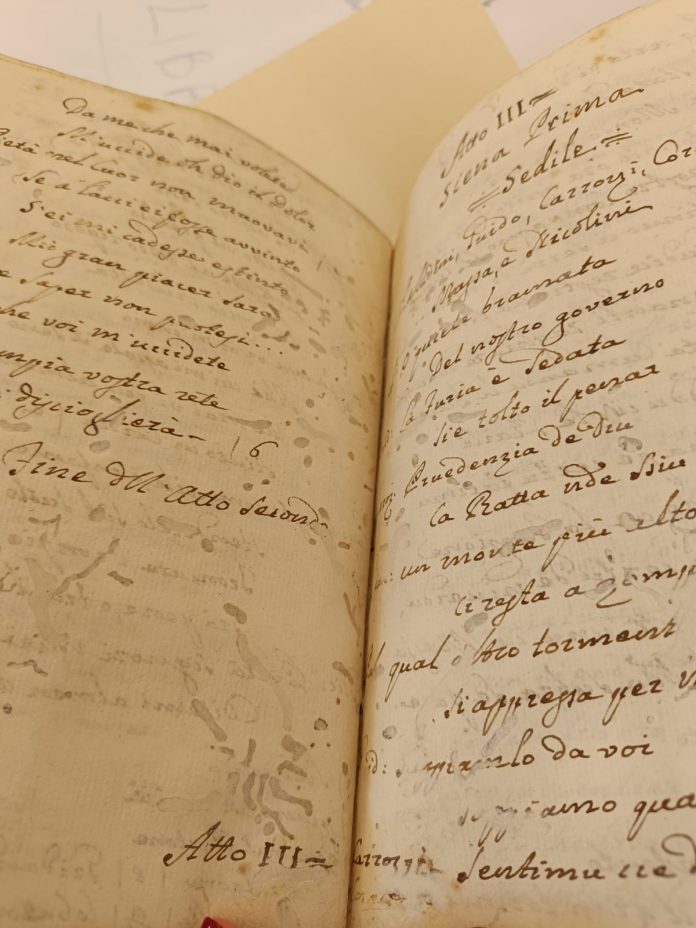 Da me che mai volete
M'uccide oh dio il dolor
Pietà nel Cuor non muovavi
Se a lacci ei fosse avvinto
S'ei mi cadesse estinto
Mio gran piacer sarà
Saper non potesi...
che voi m'uccidete
empia vostra rete
discioglierà - 16
Fine dell Atto Second
Atto III =
Atto III =
Siena Prima
= Sedile =
Guido, Carrozzi, Cor
Massa, e Nicolini
O quiete bramata
Del nostro governo
la Furia è sedata
sie tolto il pensar
Pruedenzia de Diu
la Ratta
un monte più alto
ci resta a
qual altro torment
si appressa per
da voi
sappiamo qua
Carrozzi
Sentimu